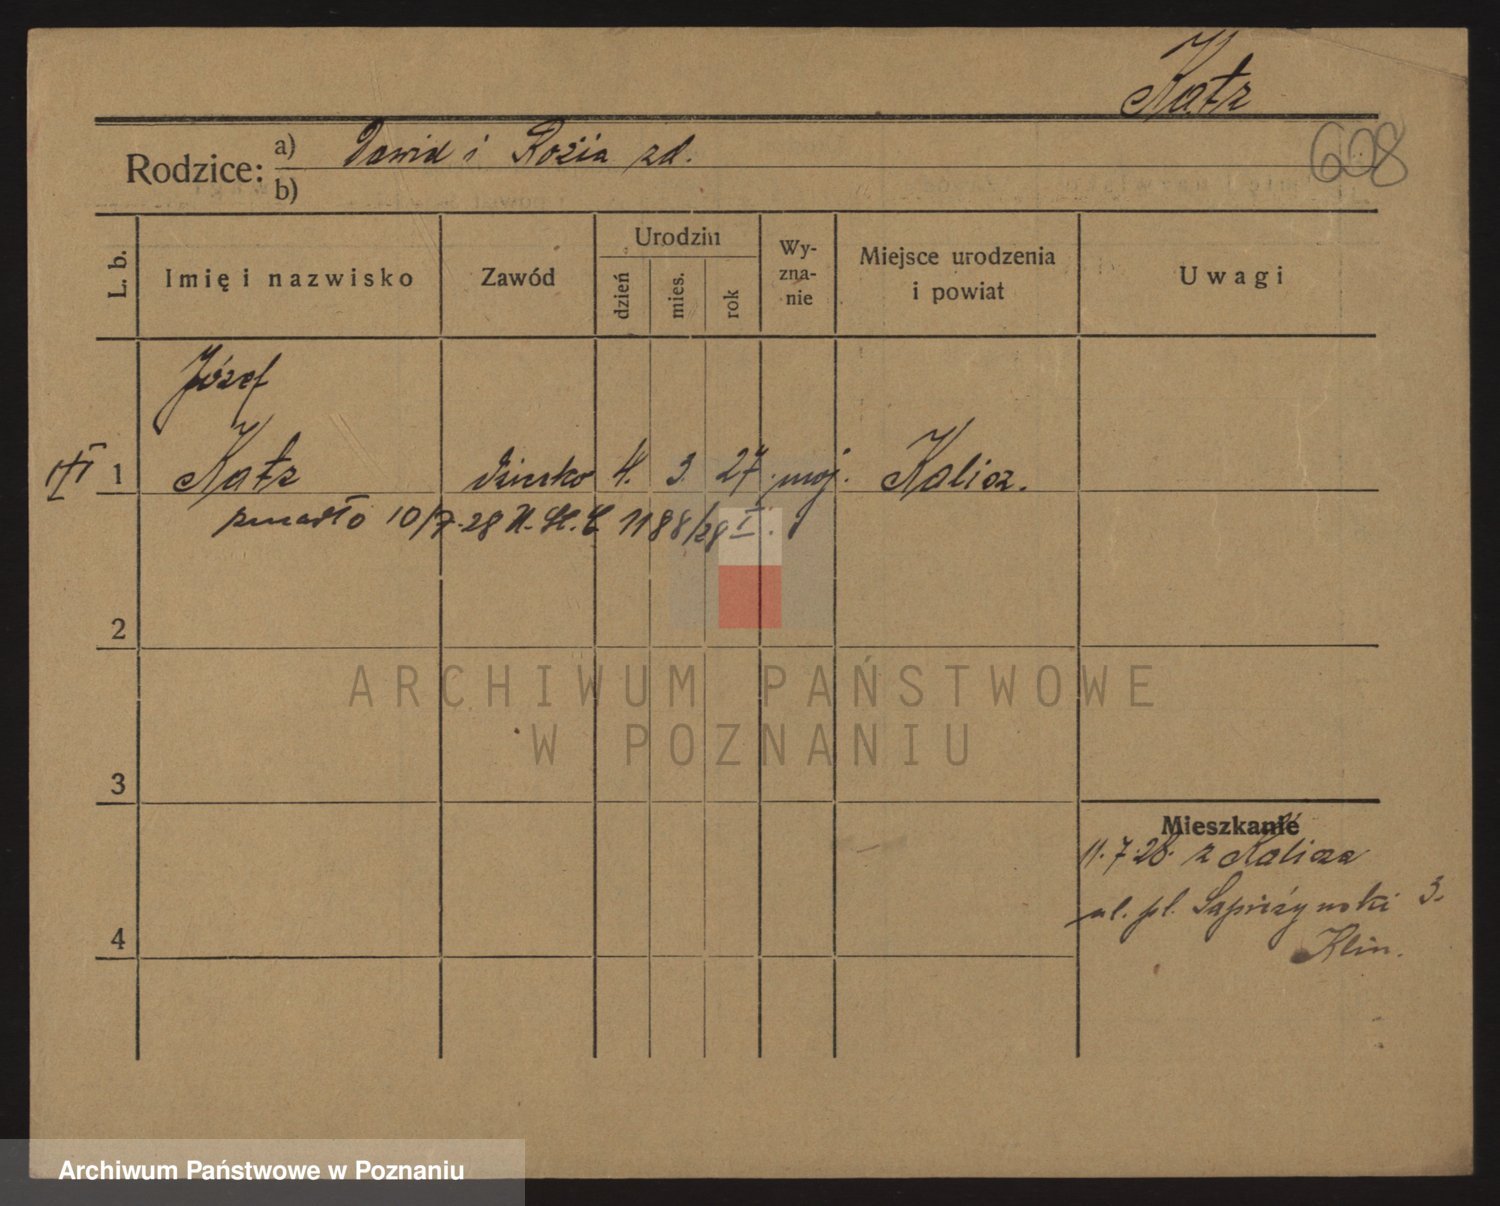 Katz
608
Rodzice: a) Dawid i Rozia zd.
b)
L. b. Imię i nazwisko Zawód Urodzin dzień mies. rok Wy-zna-nie Miejsce urodzenia i powiat Uwagi
Józef
1 Katz dziecko 4. 3. 27 moj. Kalisz.
zmarło 10/7.28 U. St. C 1188/28 I.
2
ARCHIWUM PAŃSTWOWE
W POZNANIU
3
Mieszkanie
11.7.28. z Kalisza
4
ul. pl. Sapieżynski 3.
Klin.
Archiwum Państwowe w Poznaniu